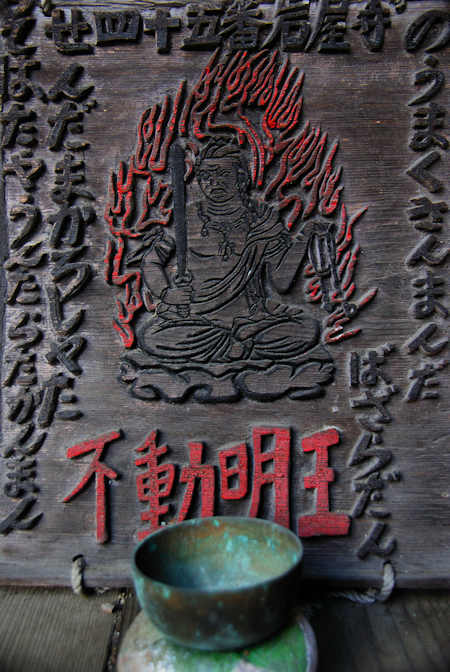 四十五番岩屋寺
のうまくさんまんだ
ばさらだん
せんだまかろしやだ
そはたやうんたらたかんまん
不動明王